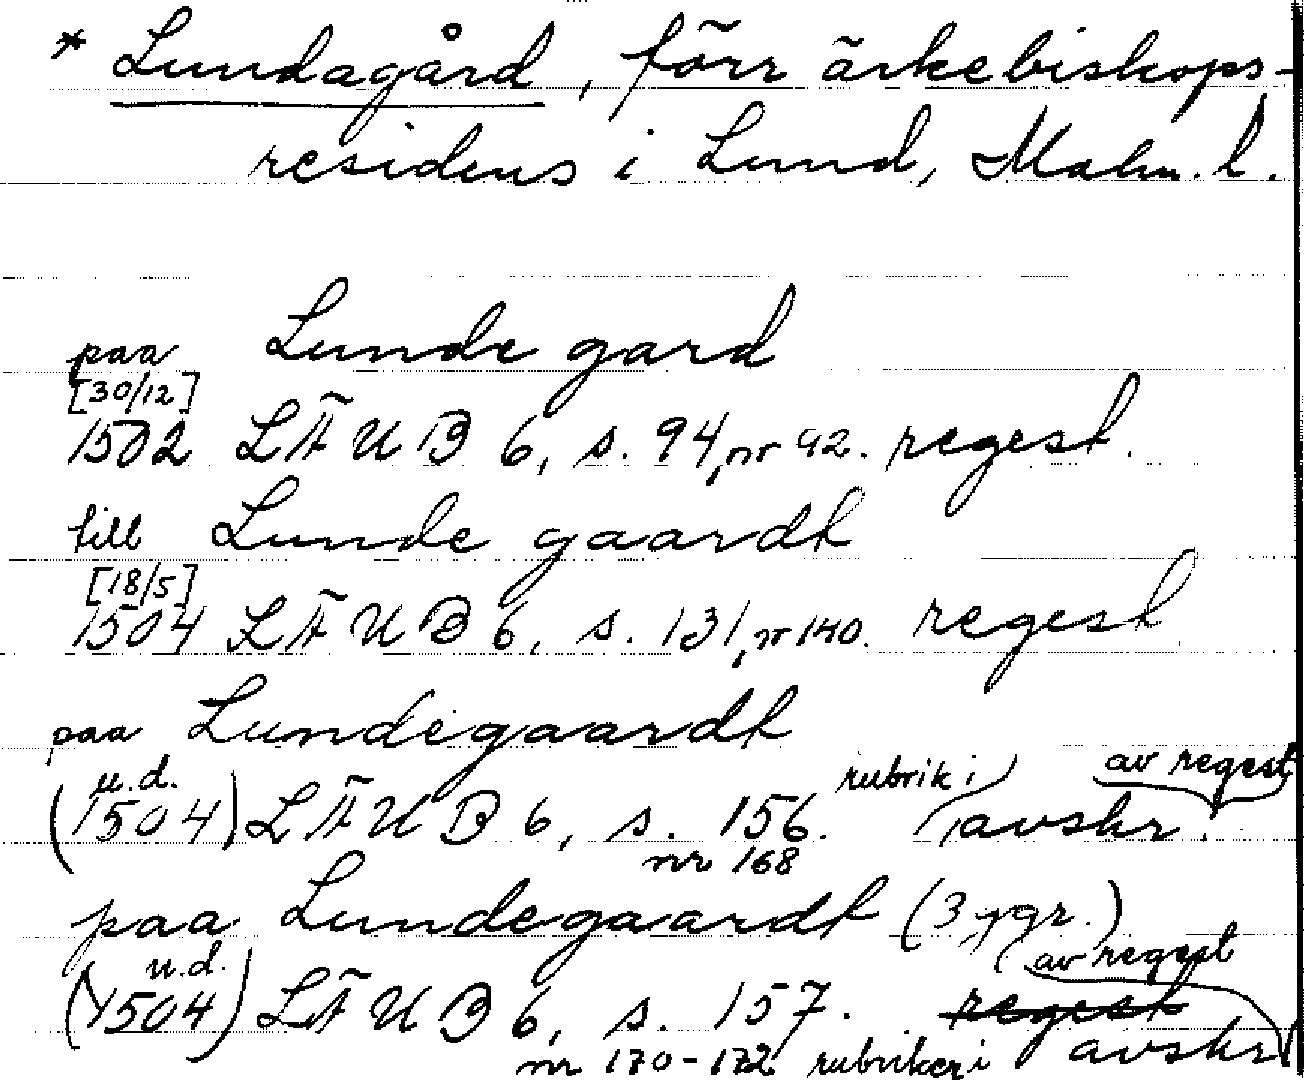 * Lundagård, förr ärkebiskops-
residens i Lund, Malm. l.
paa Lunde gard
[30/12]
1502 LÄUB 6, s. 94, nr 92. regest.
till Lunde gaardt
[18/5]
1504 LÄUB 6, s. 131, nr 140. regest
paa Lundegaardt
u.d. rubrik i av regest
(1504) LÄUB 6, s. 156. avskr.
nr 168
paa Lundegaardt (3 ggr.)
u.d. av regest
(1504) LÄUB 6, s. 157. regest
nr 170-172 rubriker i avskr